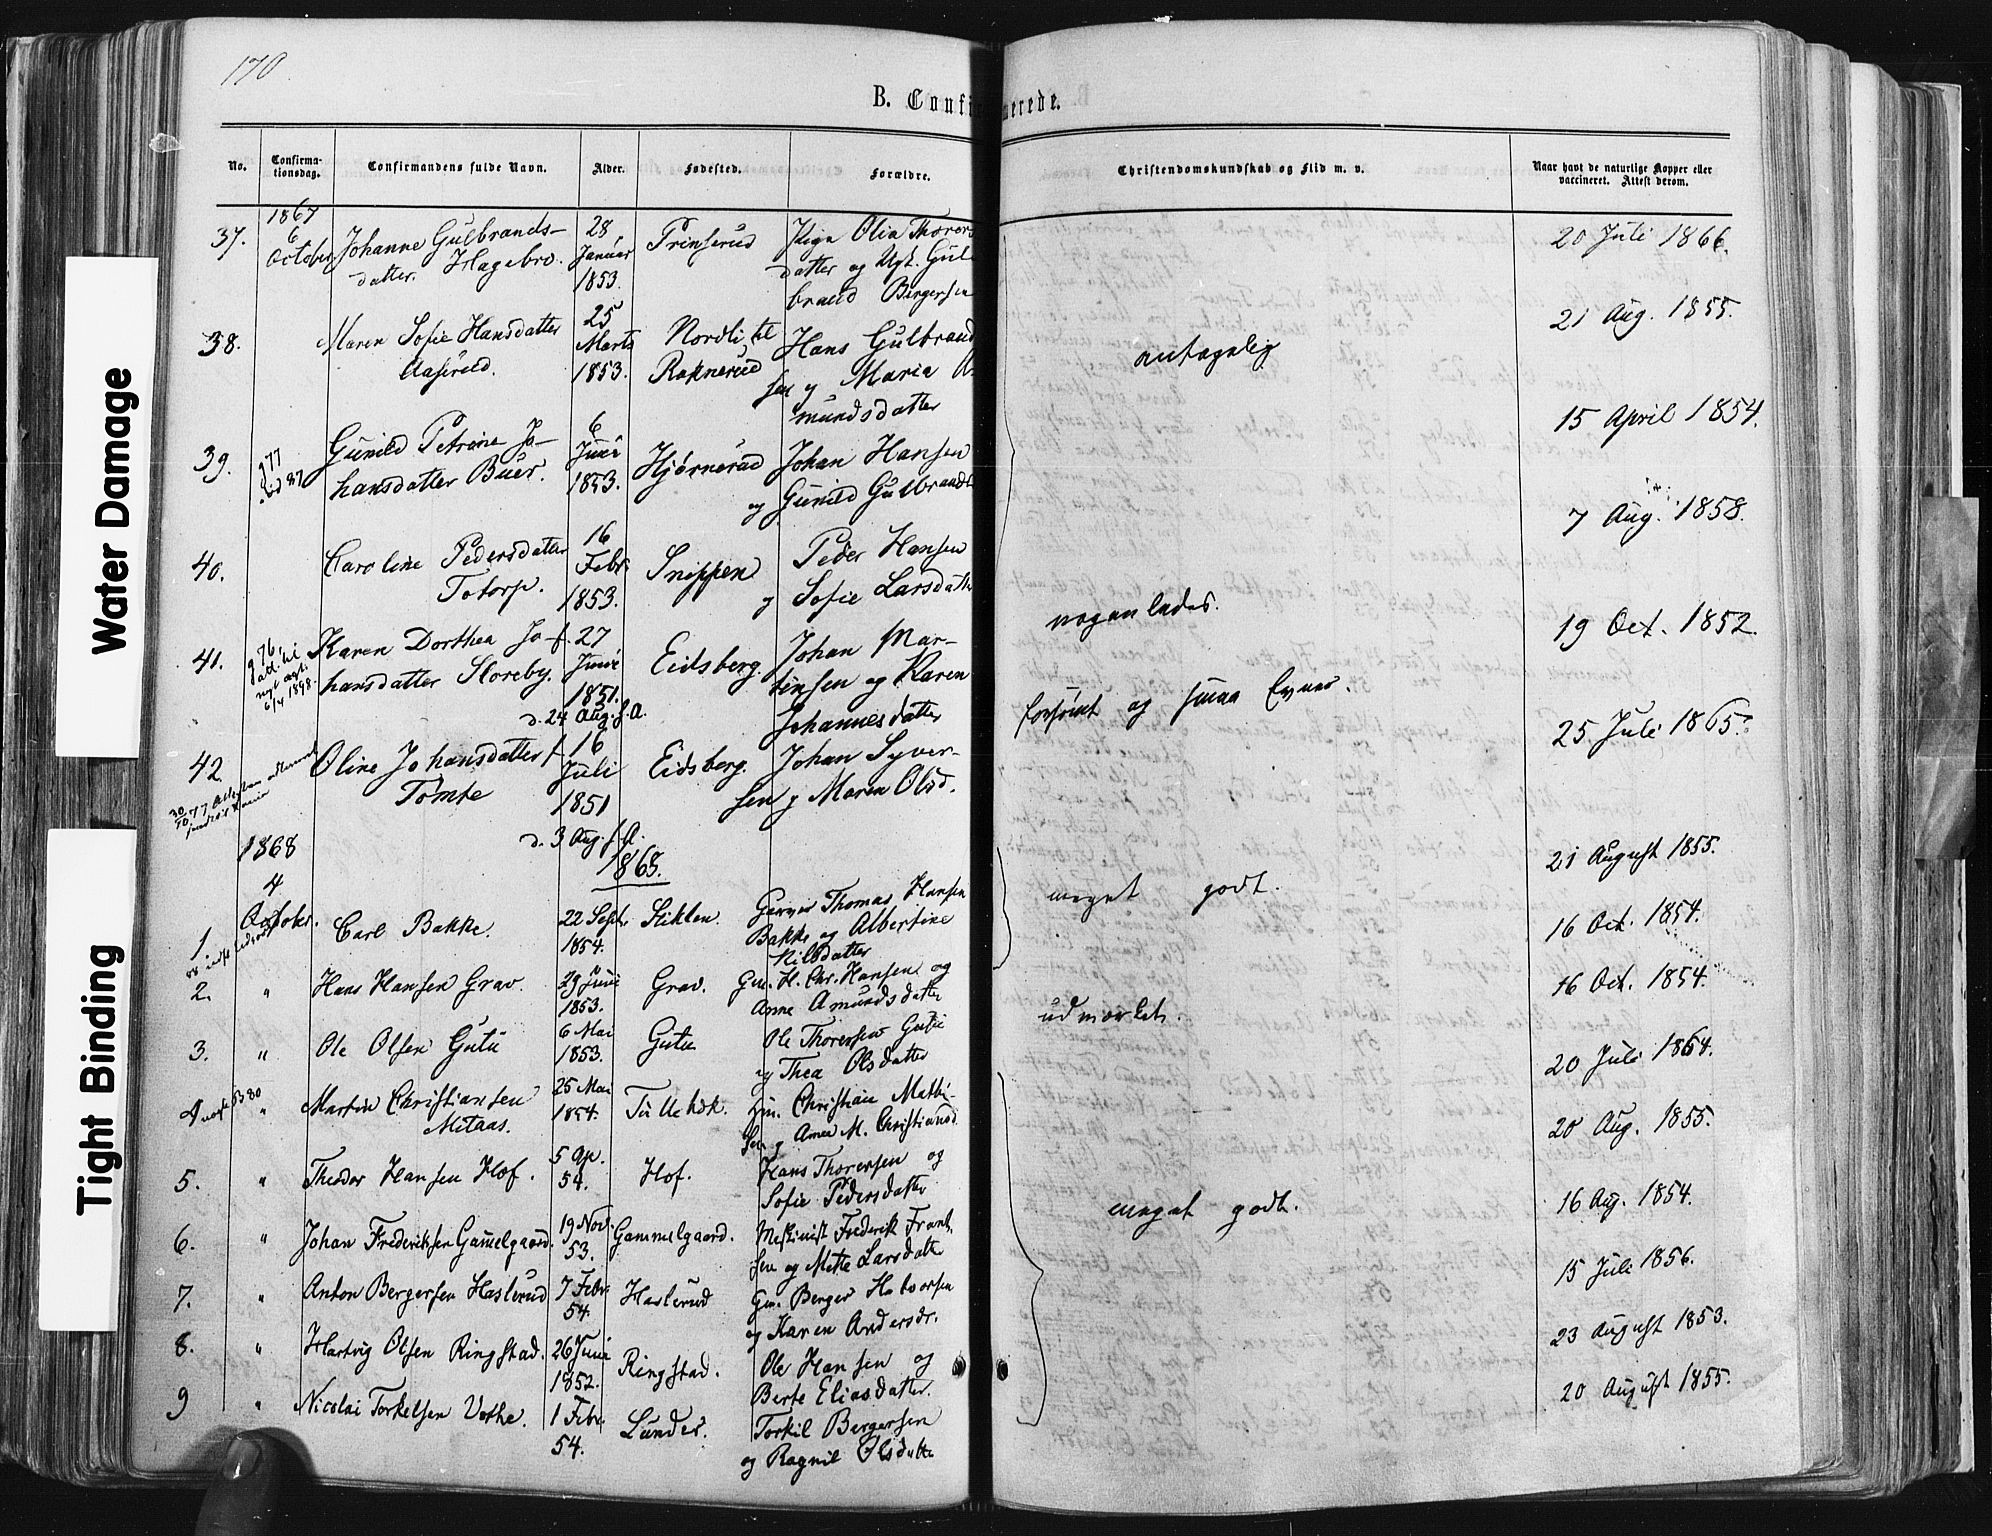 170
B. Confirmerede.
No.
Confirma-
tionsdag.
Confirmandens fulde Navn.
Alder.
Fødested.
Forældre.
Christendomskundskab og Flid m. v.
Naar havt de naturlige Kopper eller
vaccineret. Attest derom.
1867
37. 6 October Johanne Gulbrands-
datter Hagebro.
28 Januar 1853.
Prinserud
Pige Olia Thorers
datter og Ugk. Gul
brand Bergersen
20 Juli 1866.
38. Maren Sofie Hansdatter
Aaserud.
25 Marts 1853.
Nordli til
Raknerud
Hans Gulbrand
sen og Maria A
mundsdatter
antagelig
21 Aug. 1855.
39. Gunild Petrine Jo-
hansdatter Buer.
6 Juni 1853.
Hjørnerud
Johan Hansen
og Gunild Gulbrands
15 April 1854.
40. Caroline Pedersdatter
Totorp.
16 Febr. 1853.
Snippen
Peder Hansen
og Sofie Larsdatter
7 Aug. 1858.
41. Karen Dorthea Jo-
hansdatter Storeby.
f. 27 Juni 1851.
d. 24 Aug. s. A.
Eidsberg.
Johan Mar-
tinsen og Karen
Johannesdatter
nogenledes.
19 Oct. 1852.
42. Oline Johansdatter
Tomte
f. 16 Juli 1851
d. 3 Aug. s. A.
Eidsberg.
Johan Syver-
sen og Maren Olsd.
forsømt og smaa Evner.
25 Juli 1865.
1868
1868.
4 October.
1. Carl Bakke.
22 Sept. 1854.
Slikken
Garver Thomas Hansen
Bakke og Albertine
Nilsdatter
meget godt.
21 August 1855.
2. " Hans Hansen Grav.
29 Juni 1853.
Grav.
Gm. H. Chr. Hansen og
Anne Amundsdatter
16 Oct. 1854.
3. " Ole Olsen Gutu
6 Mai 1853.
Gutu
Ole Thoresen Gutu
og Thea Olsdatter
udmærket.
16 Oct. 1854.
4 " Martin Christiansen
Mitaas.
25 Mai 1854.
Christian Mathi-
sen og Anne M. Christiansd
20 Juli 1864.
5. " Theodor Hansen Hof.
5 Ap. 54.
Hof.
Hans Thorersen og
Sofie Pedersdatter
20 Aug. 1855.
6. " Johan Frederiksen Gamelgaard.
19 Nov. 53.
Gammelgaard.
Frederik Frant
sen og Mette Larsdatter
meget godt.
16 Aug. 1854.
7. " Anton Bergersen Haslerud
7 Febr. 54.
Haslerud
Gm. Berger Halvorsen
og Karen Andersdr.
15 Juli 1856.
8. " Hartvig Olsen Ringstad.
26 Juni 1852.
Ringstad.
Ole Hansen og
Berte Eliasdatter.
23 August 1853.
9 " Nicolai Torkelsen Vethe.
1 Febr. 54.
Lunder.
Torkil Bergersen
og Ragnil Olsdatter
20 August 1855.
Water Damage
Tight Binding